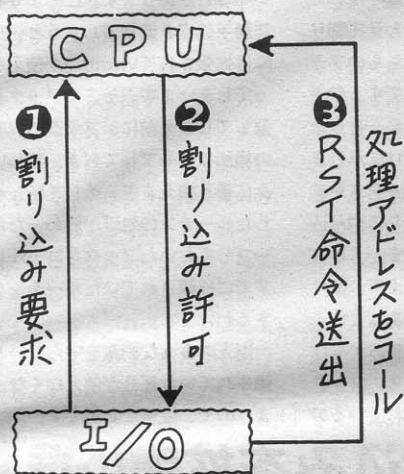 CPU
❶割り込み要求
❷割り込み許可
❸RST命令送出
処理アドレスをコール
I/O